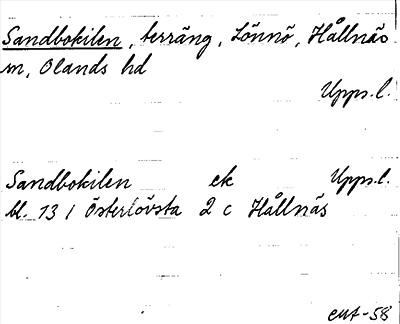 Sandbokilen, terräng, Lönnö, Hållnäs
sn, Olands hd
Upps.l.
Sandbokilen ek Upps.l.
bl. 13 I Österlövsta 2 c Hållnäs
eut-58